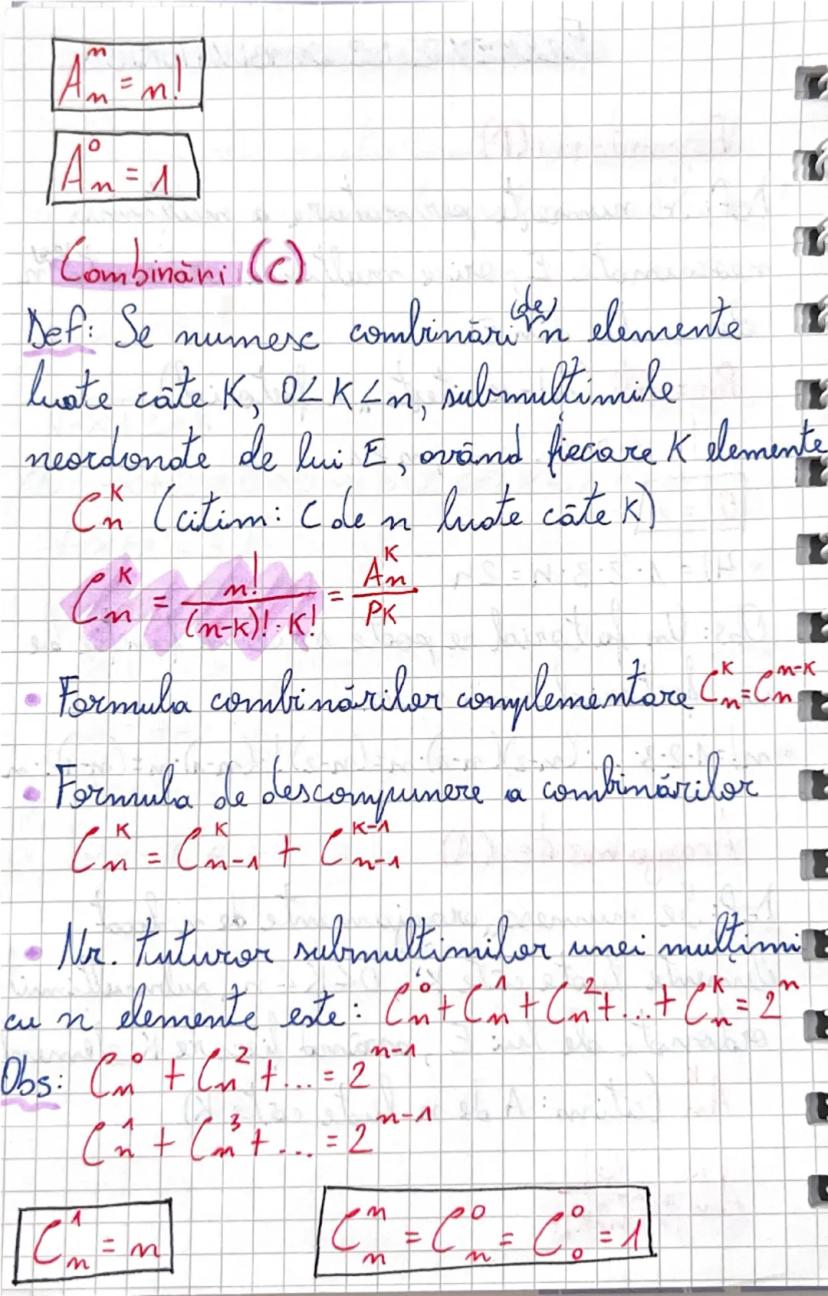 Aₙⁿ = n!
Aₙ⁰ = 1
Combinări (C)
Def: Se numesc combinări (de) n elemente
luate câte K, 0<K<n, submulțimile
neordonate de lui E, având fiecare K elemente
Cₙᴷ (citim: C de n luate câte K)
Cₙᴷ = n! / (n-k)! · K! = Aₙᴷ / PK
• Formula combinărilor complementare Cₙᴷ = Cₙⁿ⁻ᴷ
• Formula de descompunere a combinărilor
Cₙᴷ = Cₙ₋₁ᴷ + Cₙ₋₁ᴷ⁻¹
• Nr. tuturor submultimilor unei mulțimi
cu n elemente este: Cₙ⁰ + Cₙ¹ + Cₙ² + ... + Cₙᴷ = 2ⁿ
Obs: Cₙ⁰ + Cₙ² + ... = 2ⁿ⁻¹
Cₙ¹ + Cₙ³ + ... = 2ⁿ⁻¹
Cₙ¹ = n
Cₙⁿ = Cₙ⁰ = C₀⁰ = 1